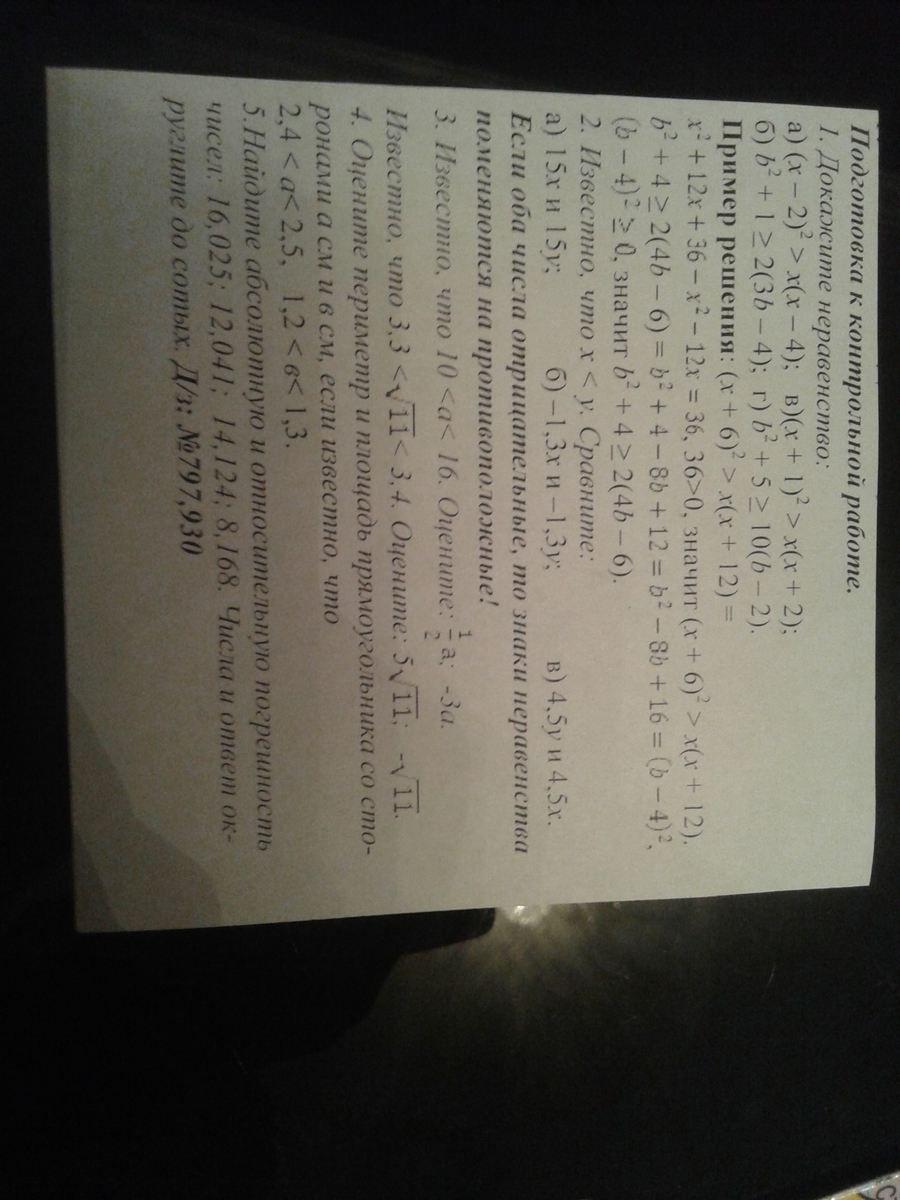 Подготовка к контрольной работе.
1. Докажите неравенство:
а) (x − 2)² > x(x − 4); в)(x + 1)² > x(x + 2);
б) b² + 1 ≥ 2(3b − 4); г) b² + 5 ≥ 10(b − 2).
Пример решения: (x + 6)² > x(x + 12) =
x² + 12x + 36 − x² − 12x = 36, 36>0, значит (x + 6)² > x(x + 12).
b² + 4 ≥ 2(4b − 6) = b² + 4 − 8b + 12 = b² − 8b + 16 = (b − 4)²,
(b − 4)² ≥ 0, значит b² + 4 ≥ 2(4b − 6).
2. Известно, что x < y. Сравните:
а) 15x и 15y; б) −1,3x и −1,3y; в) 4,5y и 4,5x.
Если оба числа отрицательные, то знаки неравенства
поменяются на противоположные!
3. Известно, что 10 <a< 16. Оцените: 1/2 а; -3а.
Известно, что 3,3 <√11< 3,4. Оцените: 5√11; -√11.
4. Оцените периметр и площадь прямоугольника со сто-
ронами а см и в см, если известно, что
2,4 < a< 2,5, 1,2 < в< 1,3.
5.Найдите абсолютную и относительную погрешность
чисел: 16,025; 12,041; 14,124; 8,168. Числа и ответ ок-
руглите до сотых. Д/з: №797,930